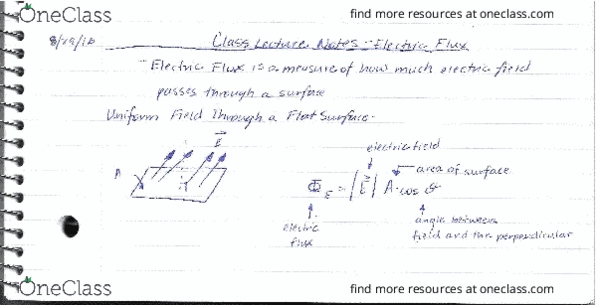 OneClass
find more resources at oneclass.com
Class Lecture Notes - Electric Flux
- Electric Flux is a measure of how much electric field
passes through a surface
Uniform Field Through a Flat Surface.
E
A
electric field
area of surface
Φ E = |E| A · cos θ
electric
flux
angle between
field and the perpendicular
OneClass
find more resources at oneclass.com